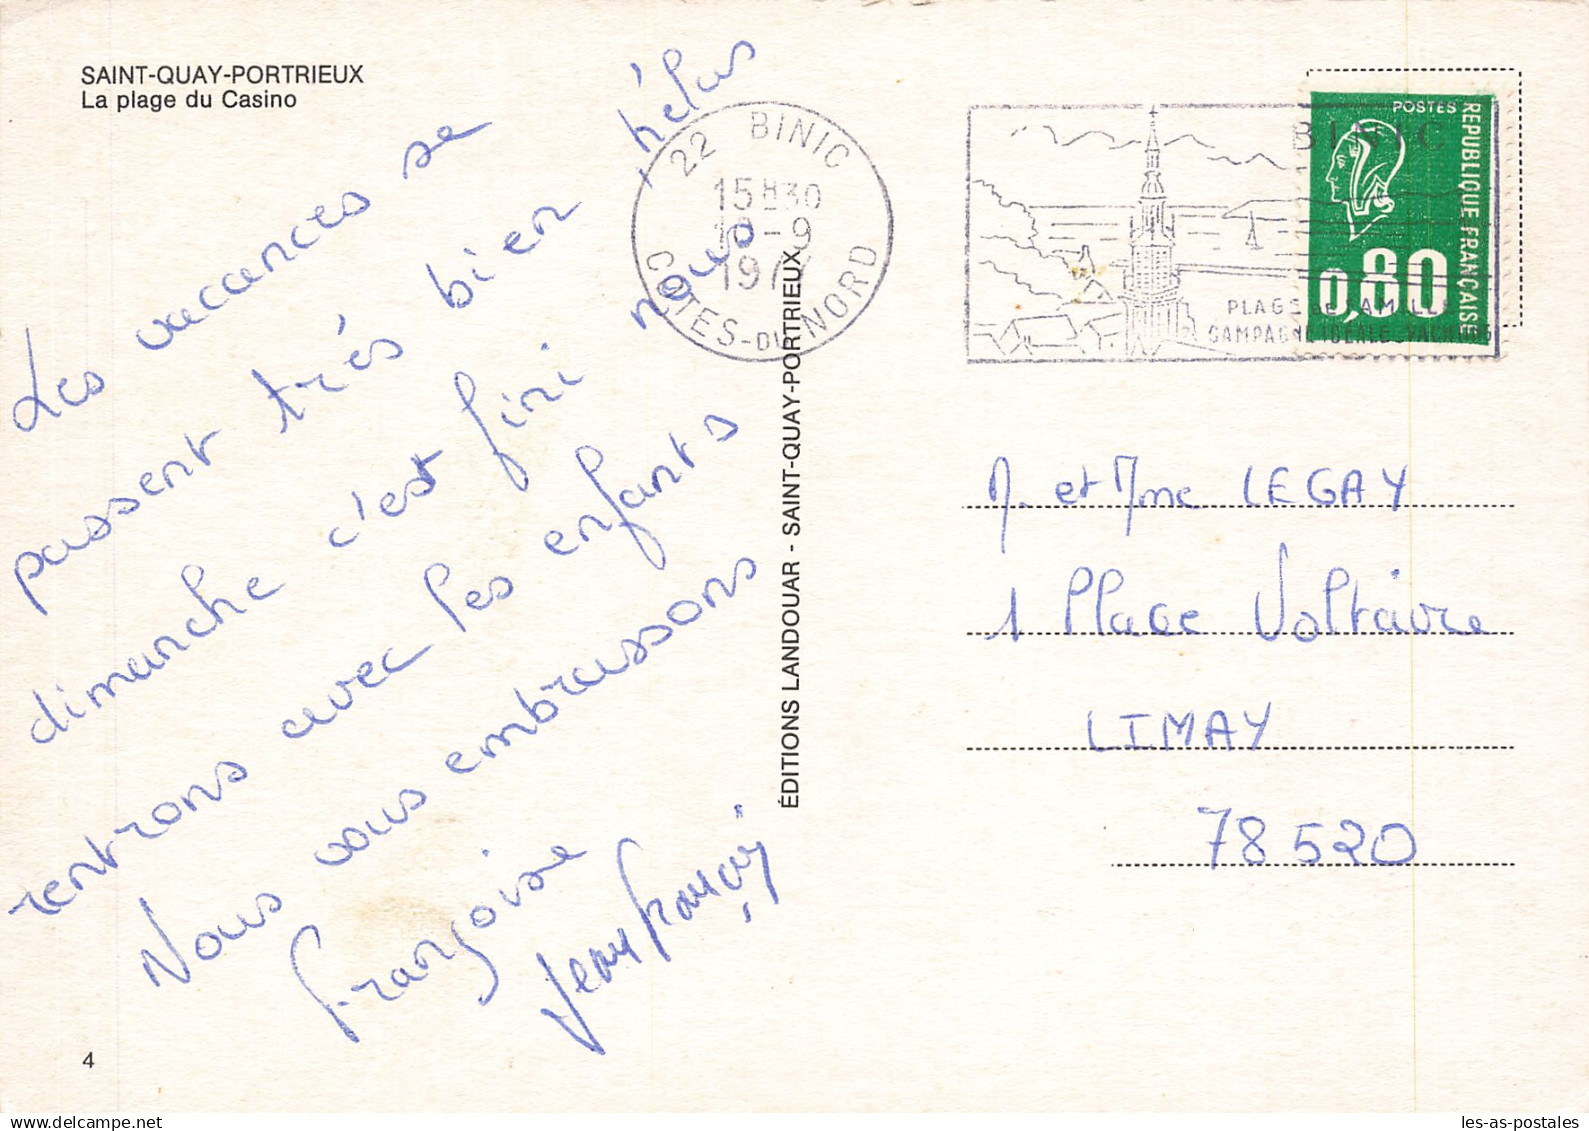 SAINT-QUAY-PORTRIEUX
La plage du Casino
Les vacances se
passent très bien, hélas
dimanche c'est fini nous
rentrons avec les enfants
Nous vous embrassons
Françoise
Jean François
4
ÉDITIONS LANDOUAR - SAINT-QUAY-PORTRIEUX
22 BINIC
15H30
-9
197
COTES-DU-NORD
BINIC
PLAGE DE FAMILLE
CAMPAGNE IDEALE
POSTES
REPUBLIQUE FRANÇAISE
0,80
M. et Mme LEGAY
1 Place Voltaire
LIMAY
78520
les-as-postales